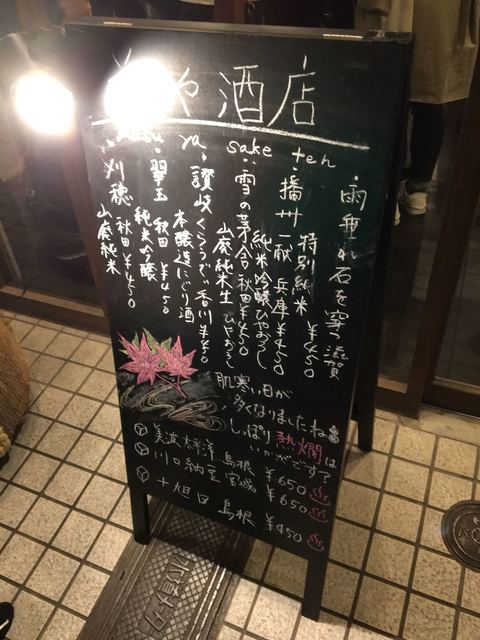 や酒店
ya sake ten
・雨垂れ石を穿つ 滋賀
特別純米 ¥450
・播州一献 兵庫 ¥450
純米吟醸ひやおろし
・雪の茅舎 秋田 ¥450
山廃純米生 ひやおろし
・讃岐くらうでぃ 香川 ¥450
本醸造にごり酒
・翠玉 秋田 ¥450
純米吟醸
・刈穂 秋田 ¥450
山廃純米
肌寒い日が
多くなりましたね
しっぽり熱燗は
いかがです?
美波太平洋 島根 ¥650
川口納豆 宮城 ¥650
十旭日 島根 ¥950